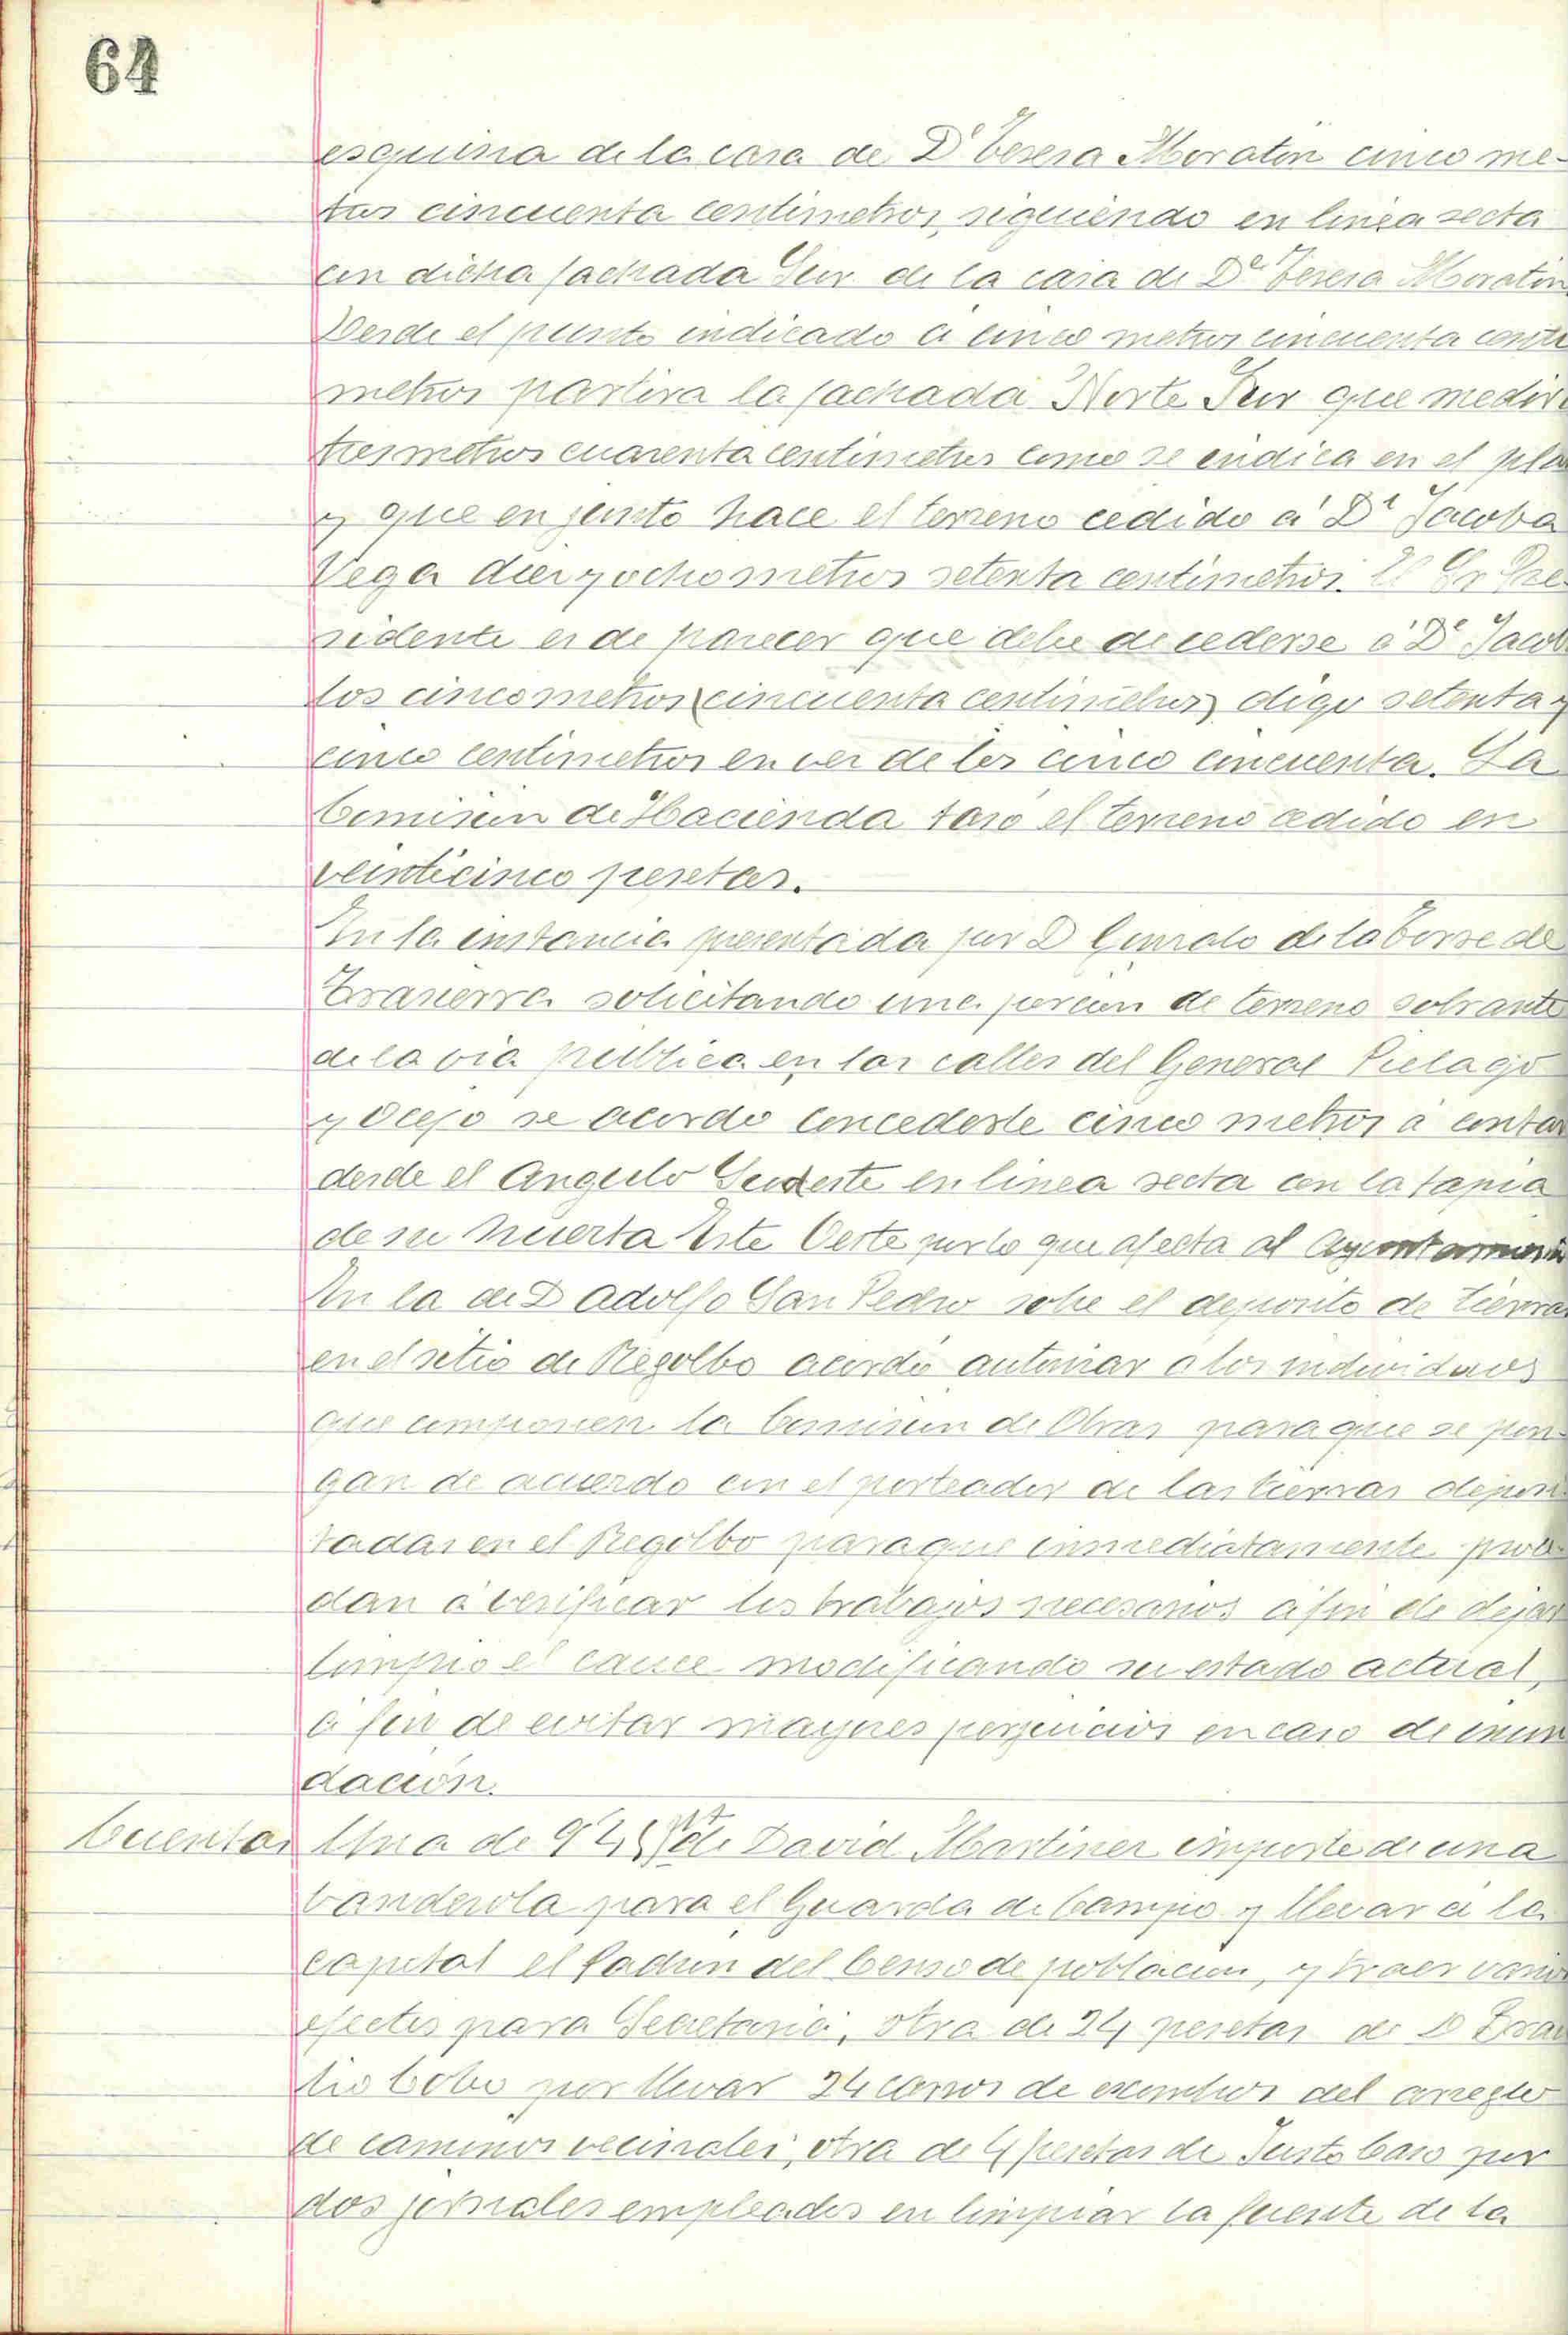 64
esquina de la casa de Dª Teresa Moratin cinco me-
tros cincuenta centimetros, siguiendo en linea recta
con dicha fachada Sur de la casa de Dª Teresa Moratin.
Desde el punto indicado a cinco metros cincuenta centi
metros partira la fachada Norte Sur que medir
tres metros cuarenta centimetros como se indica en el pla
y que en junto hace el terreno cedido á Dª Jacoba
Vega diez y ocho metros setenta centimetros. El Sr Pre-
sidente es de parecer que debe de cederse á Dª Jacob
los cinco metros (cincuenta centimetros) digo setenta y
cinco centimetros en vez de los cinco cincuenta. La
Comision de Hacienda tasó el terreno cedido en
veinticinco pesetas.
En la instancia presentada por D Gonzalo de la Torre de
Trasierra solicitando una porcion de terreno sobrante
de la via publica en las calles del General Pielago
y Ocejo se acordo concederle cinco metros á contar
desde el Angulo Sudeste en linea recta con la tapia
de su huerta Este Oeste por lo que afecta al Ayuntamien
En la de D Adolfo San Pedro sobre el deposito de tierras
en el sitio de Regolbo acordó autorizar a los individuos
que componen la Comision de Obras para que se pon-
gan de acuerdo con el porteador de las tierras deposi-
tadas en el Regolbo para que inmediatamente proce-
dan á verificar los trabajos necesarios á fin de dejar
limpio el cauce modificando su estado actual,
á fin de evitar mayores perjuicios en caso de inun
dación.
Cuentas Una de 9 Pts de David Martinez importe de una
banderola para el Guarda de Campo y llevar á la
capital el Padron del Censo de poblacion, y traer varios
efectos para Secretaria, otra de 24 pesetas de D
Cobo por llevar 24 carros de escombros del arreglo
de caminos vecinales, otra de 4 pesetas de Justo Caso por
dos jornales empleados en limpiar la fuente de la